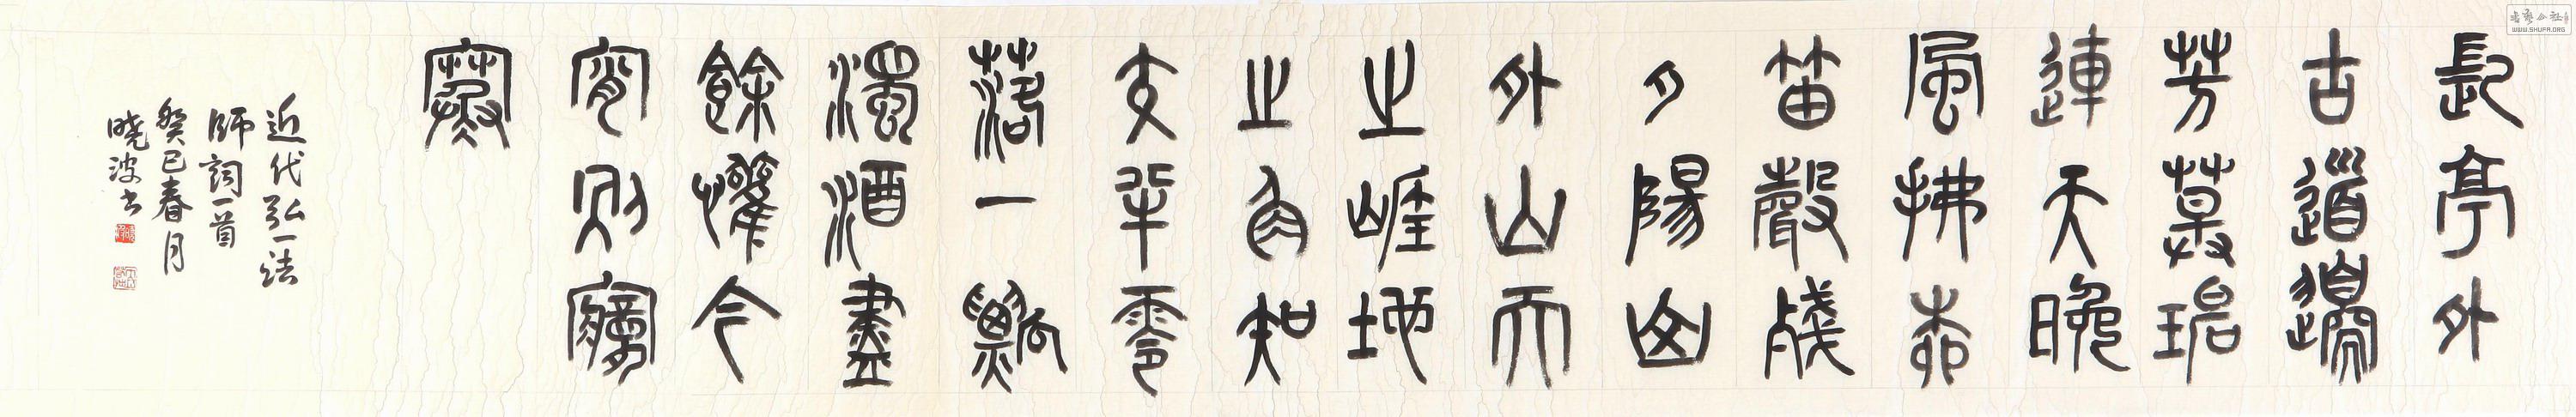 長亭外
古道邊
芳草碧
連天晚
風拂柳
笛聲殘
夕陽山
外山天
之涯地
之角知
交半零
落一瓢
濁酒盡
餘懽今
宵別夢
寒
近代弘一法
師詞一首
癸巳春月
曉波书
WWW.SHUFA.ORG